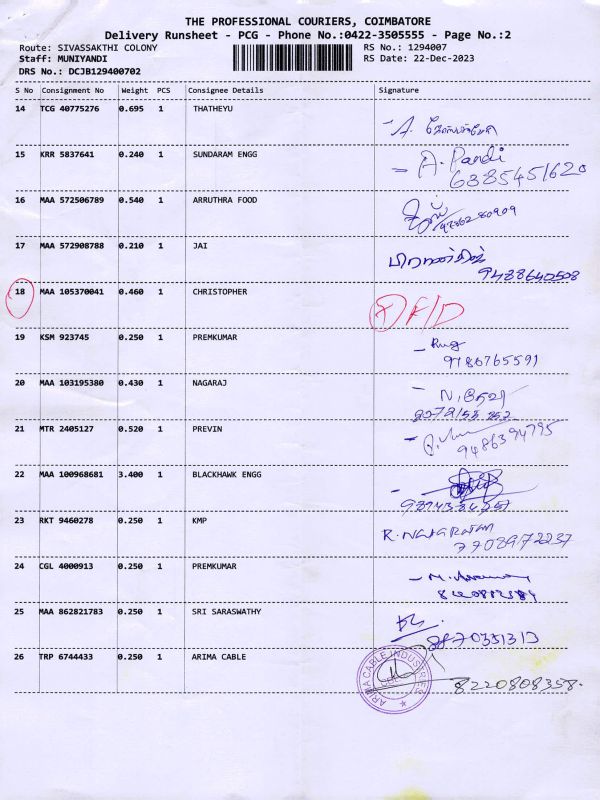 THE PROFESSIONAL COURIERS, COIMBATORE
Delivery Runsheet - PCG - Phone No.:0422-3505555 - Page No.:2
Route: SIVASSAKTHI COLONY RS No.: 1294007
Staff: MUNIYANDI RS Date: 22-Dec-2023
DRS No.: DCJB129400702
S No Consignment No Weight PCS Consignee Details Signature
14 TCG 40775276 0.695 1 THATHEYU
- A.
15 KRR 5837641 0.240 1 SUNDARAM ENGG
- A. Pandi
6385451620
16 MAA 572506789 0.540 1 ARRUTHRA FOOD
9786280909
17 MAA 572908788 0.210 1 JAI
9488640508
18 MAA 105370041 0.460 1 CHRISTOPHER
F/D
19 KSM 923745 0.250 1 PREMKUMAR
9786765591
20 MAA 103195380 0.430 1 NAGARAJ
- N.
21 MTR 2405127 0.520 1 PREVIN
9486394795
22 MAA 100968681 3.400 1 BLACKHAWK ENGG
23 RKT 9460278 0.250 1 KMP
R. NAGARATHAN
7708972237
24 CGL 4000913 0.250 1 PREMKUMAR
- M.
25 MAA 862821783 0.250 1 SRI SARASWATHY
8870331313
26 TRP 6744433 0.250 1 ARIMA CABLE
ARIMA CABLE INDUSTRIES
8220808358.